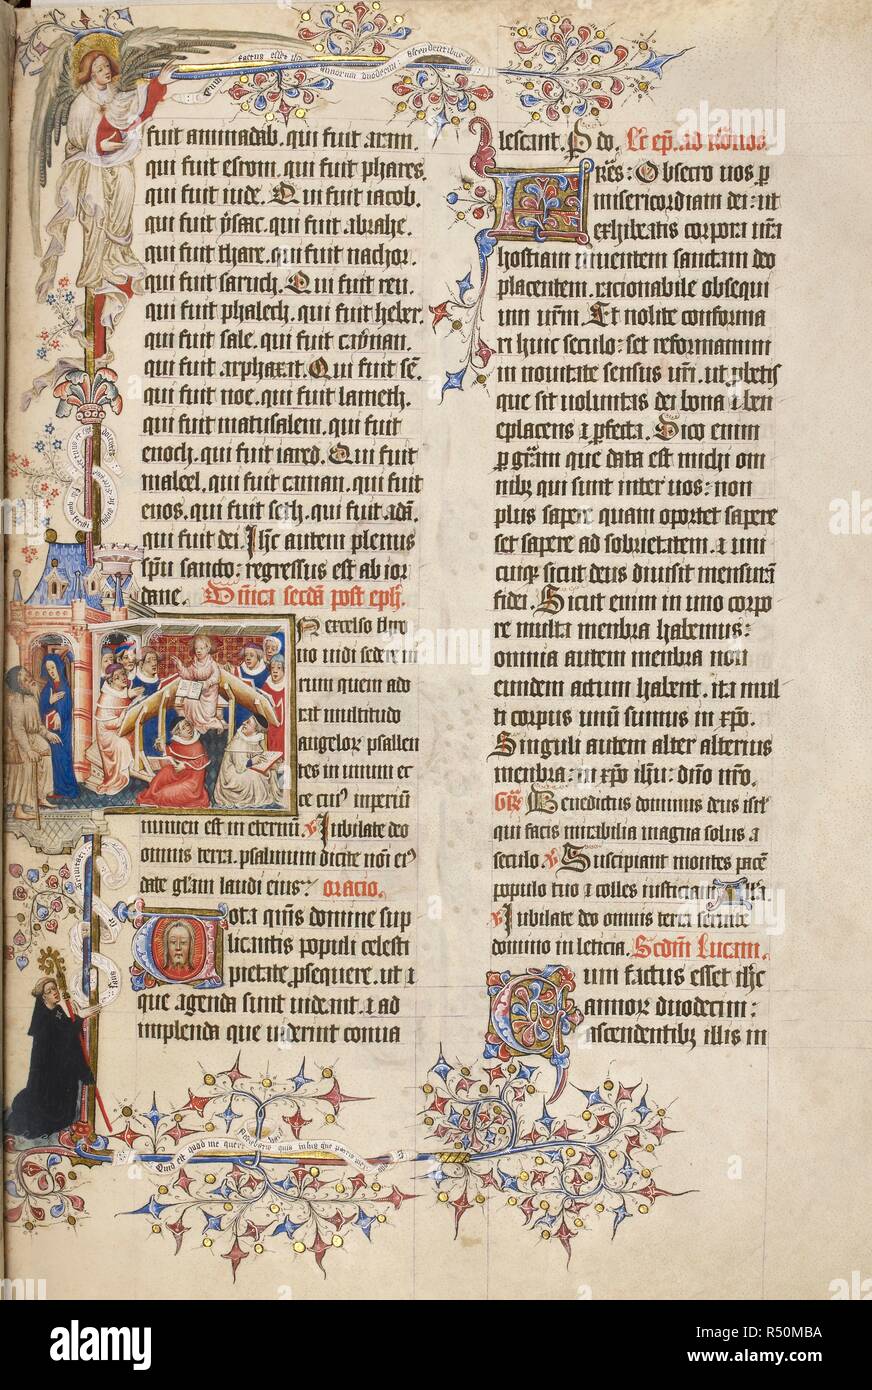 fuit aminadab. qui fuit aram.
qui fuit esrom. qui fuit phares.
qui fuit iude. Qui fuit iacob.
qui fuit ysaac. qui fuit abrahe.
qui fuit thare. qui fuit nachor.
qui fuit saruch. Qui fuit reu.
qui fuit phalech. qui fuit heber.
qui fuit sale. qui fuit caynan.
qui fuit arphaxat. Qui fuit sē.
qui fuit noe. qui fuit lameth.
qui fuit matusalem. qui fuit
enoch. qui fuit iared. Qui fuit
maleel. qui fuit cainan. qui fuit
enos. qui fuit seth. qui fuit adā.
qui fuit dei. Ihc autem plenus
spū sancto: regressus est ab ior
dane. Dn̄ica secda post eph.
N excelso thro
no uidi sedere ui
rum quem ado
rat multitudo
angelor psallen
tes in unum ec
ce cuiꝰ imperiū
nomen est in eternū. ℣ Iubilate deo
omnis terra. psalmum dicite nōi eiꝰ
date glam laudi eius. oracio.
Uota qm̄s domine sup
plicantis populi celesti
pietate psequere. ut ⁊
que agenda sunt uideant. ⁊ ad
implenda que uiderint conua
lescant. P do. Lc ep. ad Romos.
FRes: Obsecro uos p
misericordiam dei: ut
exhibeatis corpora ura
hostiam uiuentem sanctam deo
placentem. racionabile obsequi
um urm. Et nolite conforma
ri huic seculo: set reformamini
in nouitate sensus uri. ut pbetis
que sit uoluntas dei bona ⁊ ben
eplacens ⁊ pfecta. Dico enim
p gram que data est michi om
nibꝫ qui sunt inter uos: non
plus sapere quam oportet sapere
set sapere ad sobrietatem. ⁊ uni
cuique sicut deus diuisit mensurā
fidei. Sicut enim in uno corpo
re multa menbra habemus:
omnia autem menbra non
eundem actum habent. ita mul
ti corpus unū sumus in xpo.
Singuli autem alter alterius
menbra: in xpo ihu: dno nro.
Gre Benedictus dominus deus isrl
qui facis mirabilia magna solus a
seculo. ℣ Suscipiant montes pacē
populo tuo ⁊ colles iusticiam. Alla.
℣ Iubilate deo omnis terra seruite
domino in leticia. Scdm Lucam.
Cum factus esset ihc
annor duodecim:
ascendentibꝫ illis in
alamy
Image ID: R50MBA
www.alamy.com